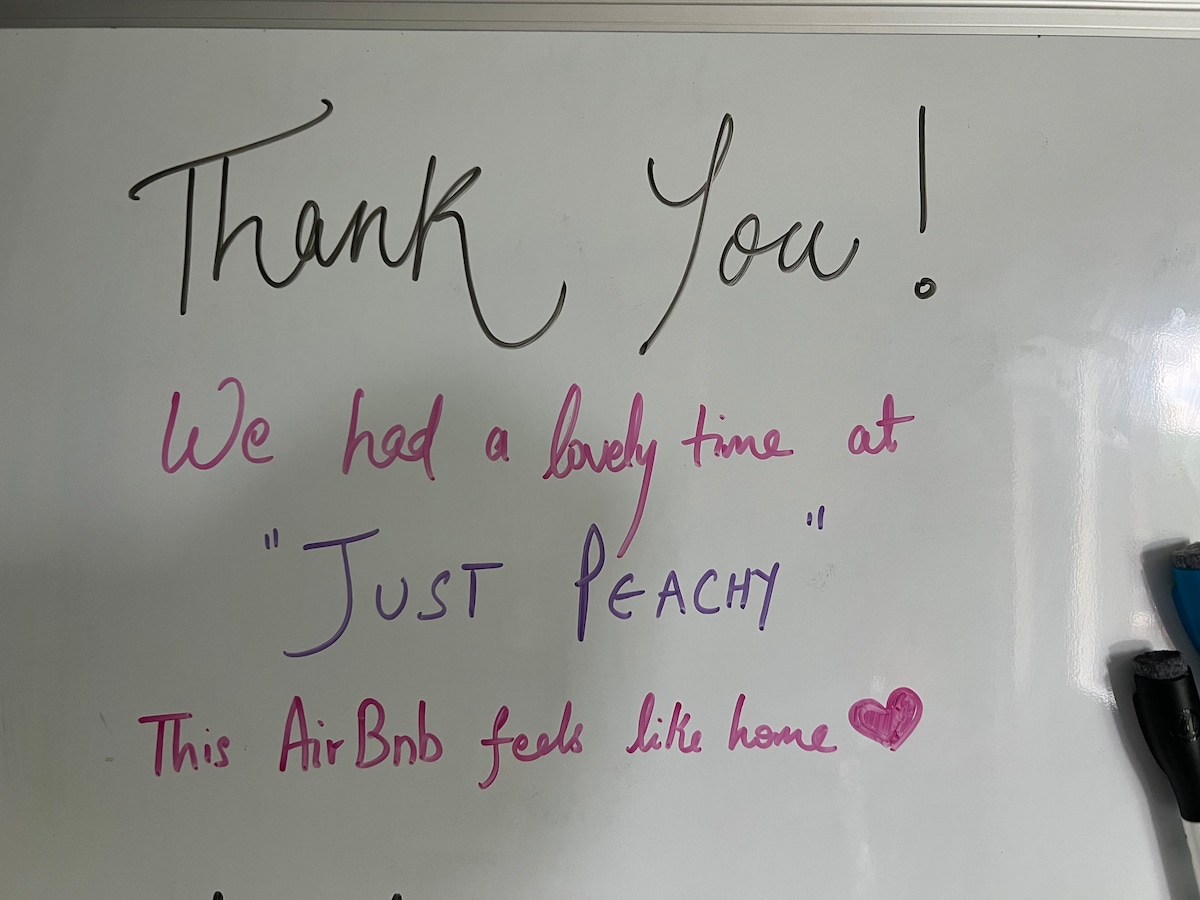 Thank You!
We had a lovely time at
"JUST PEACHY"
This AirBnb feels like home